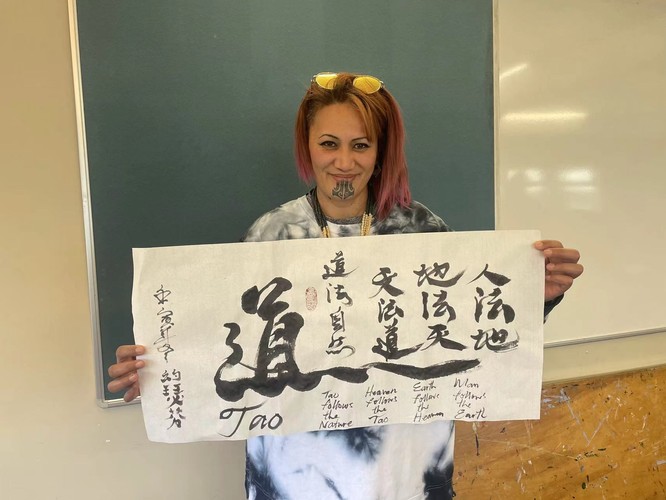 人法地
地法天
天法道
道法自然
道
Man
follows
the
Earth
Earth
follows
the
Heaven
Heaven
follows
the
Tao
Tao
follows
the
Nature
Tao